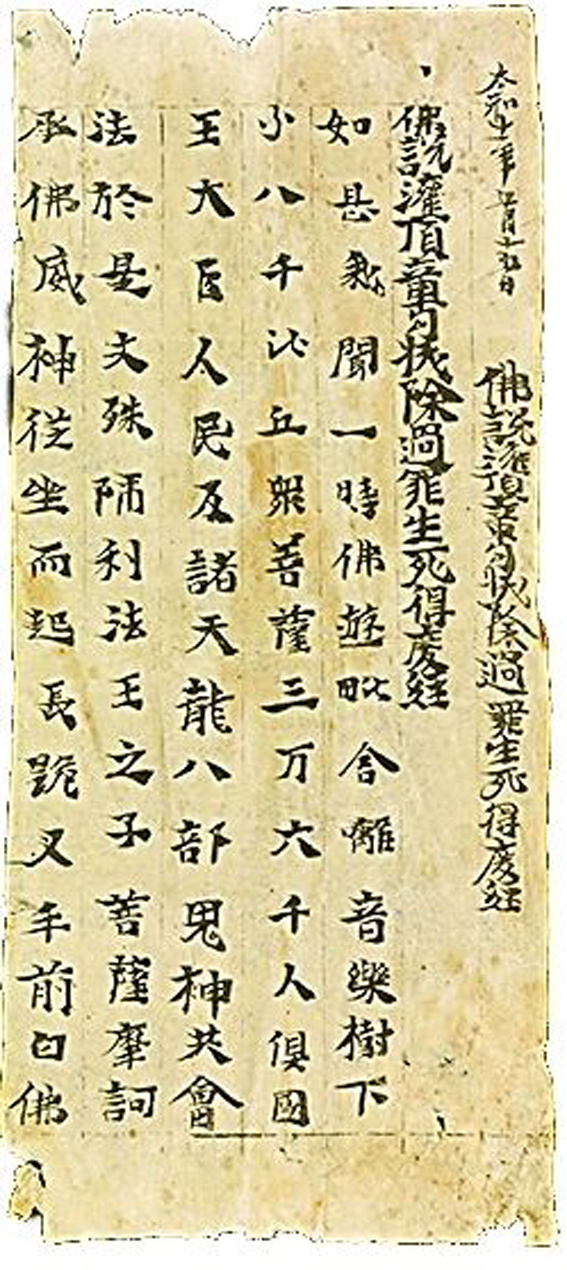 太和十一年五月十五日
佛說灌頂章句拔除過罪生死得度經
佛說灌頂章句拔除過罪生死得度経
如是我聞一時佛遊毗舍離音樂樹下
小八千比丘衆菩薩三万六千人俱國
王大臣人民及諸天龍八部鬼神共會
法於是文殊師利法王之子菩薩摩訶
承佛威神從坐而起長跪叉手前白佛